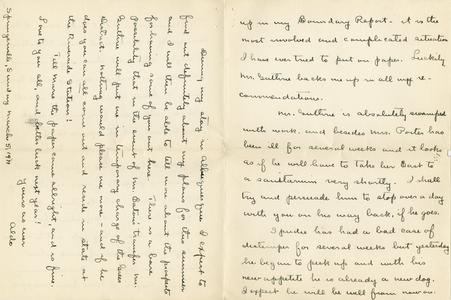 up in my Boundary Report - it is the
most involved and complicated situation
I have ever tried to put on paper. Luckily
Mr. Guthrie backs me up in all my re-
commendations.
Mr. Guthrie is absolutely swamped
with work, and besides Mrs. Porter has
been ill for several weeks and it looks
as if he will have to take her East to
a sanitarium very shortly. I shall
try and persuade him to stop over a day
with you on his way back, if he goes.
has had a bad case of
distemper for several weeks but yesterday
he began to perk up and with his
new appetite he is already a new dog.
I expect he will be well from now on.
During my stay in Albuquerque I expect to
find out definitely about my plans for this summer
and I will then be able to tell more about the prospects
for having some of you out here. There is a bare
possibility that in the event of Mr. transfer Mr.
Guthrie will put me in temporary charge of the
District. Nothing would please me more - and if he
does you can all come out and reside in state at
the Riverside Station!
Tell Mother the paper came allright and is fine.
Love to you all, and
Yours as ever
Aldo
Springerville, Sunday March 5, 1911